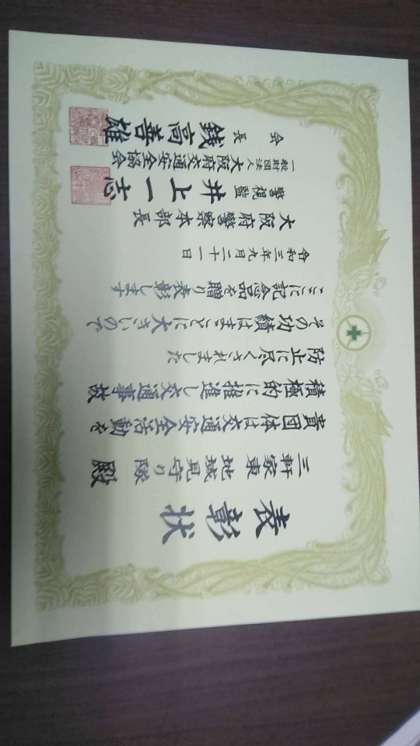 表彰状
三軒家東
地域見守り隊 殿
貴団体は交通安全活動を
積極的に推進し交通事故
防止に尽くされました
その功績はまことに大きいので
ここに記念品を贈り表彰します
令和三年九月二十一日
大阪府警察本部長
警視監 井上一志
一般財団法人大阪府交通安全協会
会長 銭高善雄